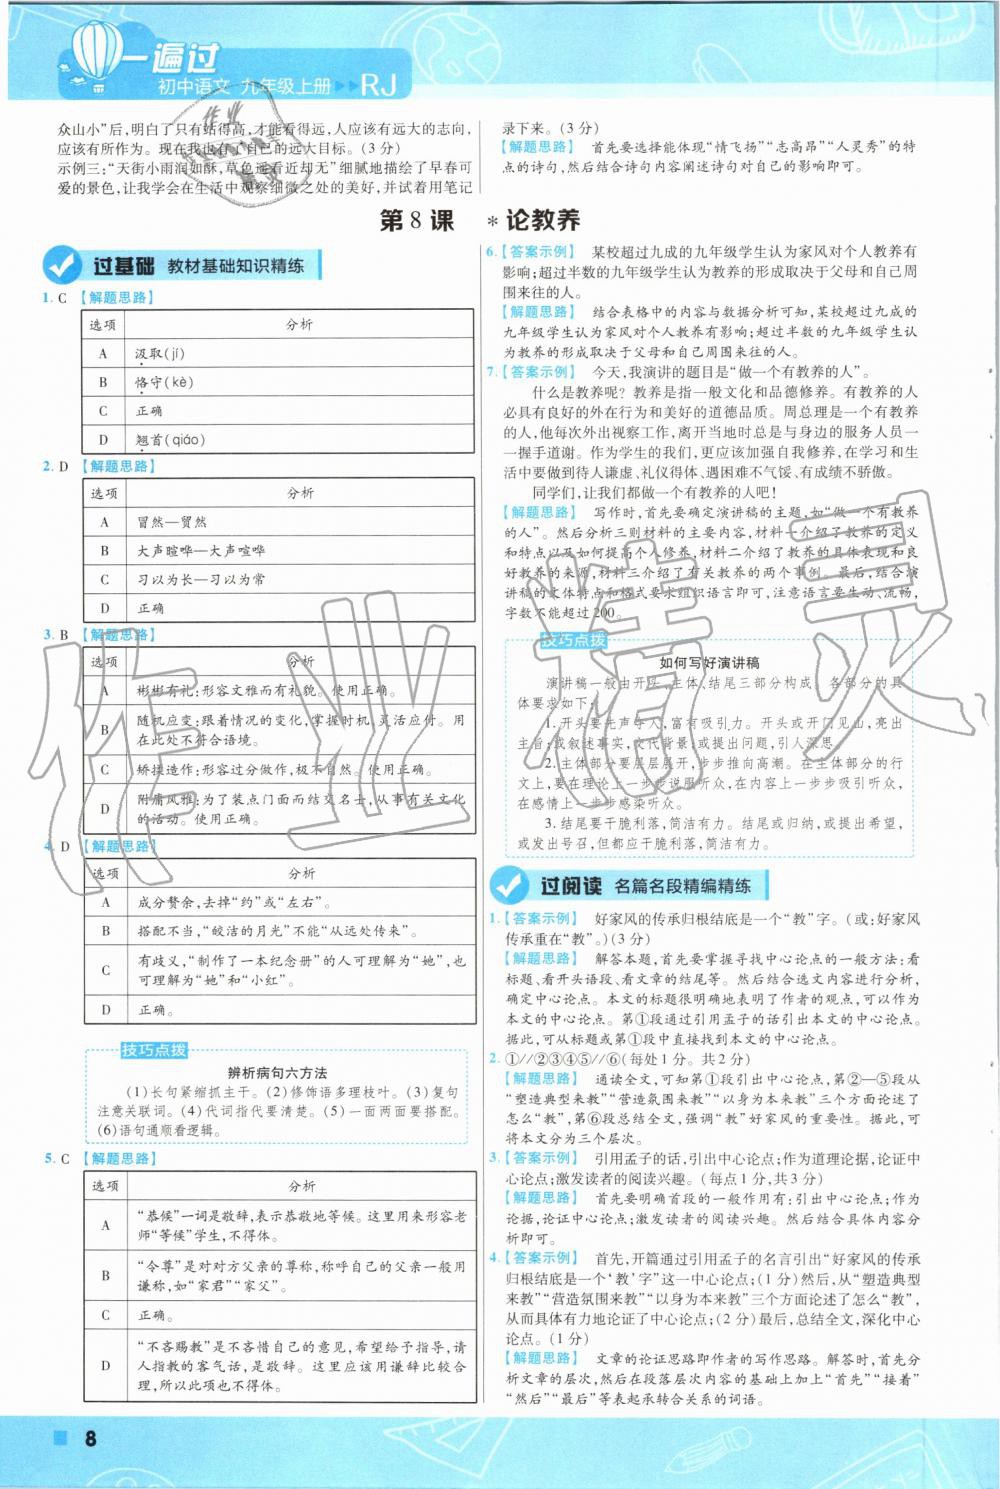 一遍过
初中语文 九年级上册 RJ
众山小”后,明白了只有站得高,才能看得远,人应该有远大的志向,
应该有所作为。现在我也有了自己的远大目标。(3分)
示例三:“天街小雨润如酥,草色遥看近却无”细腻地描绘了早春可
爱的景色,让我学会在生活中观察细微之处的美好,并试着用笔记
录下来。(3分)
【解题思路】 首先要选择能体现“情飞扬”“志高昂”“人灵秀”的特
点的诗句,然后结合诗句内容阐述诗句对自己的影响即可。
第8课 *论教养
过基础 教材基础知识精练
1. C 【解题思路】
选项 分析
A 汲取(jí)
B 恪守(kè)
C 正确
D 翘首(qiáo)
2. D 【解题思路】
选项 分析
A 冒然—贸然
B 大声喧哗—大声喧哗
C 习以为长—习以为常
D 正确
3. B 【解题思路】
选项 分析
A 彬彬有礼:形容文雅而有礼貌。使用正确。
B 随机应变:跟着情况的变化,掌握时机,灵活应付。用
在此处不符合语境。
C 矫揉造作:形容过分做作,极不自然。使用正确。
D 附庸风雅:为了装点门面而结交名士,从事有关文化
的活动。使用正确。
4. D 【解题思路】
选项 分析
A 成分赘余,去掉“约”或“左右”。
B 搭配不当,“皎洁的月光”不能“从远处传来”。
C 有歧义,“制作了一本纪念册”的人可理解为“她”,也
可理解为“她”和“小红”。
D 正确。
技巧点拨
辨析病句六方法
(1)长句紧缩抓主干。(2)修饰语多理枝叶。(3)复句
注意关联词。(4)代词指代要清楚。(5)一面两面要搭配。
(6)语句通顺看逻辑。
5. C 【解题思路】
选项 分析
A “恭候”一词是敬辞,表示恭敬地等候。这里用来形容老
师“等候”学生,不得体。
B “令尊”是对对方父亲的尊称,称呼自己的父亲一般用
谦称,如“家君”“家父”。
C 正确。
D “不吝赐教”是不吝惜自己的意见,希望给予指导,请
人指教的客气话,是敬辞。这里应该用谦辞比较合
理,所以此项也不得体。
6.【答案示例】 某校超过九成的九年级学生认为家风对个人教养有
影响;超过半数的九年级学生认为教养的形成取决于父母和自己周
围来往的人。
【解题思路】 结合表格中的内容与数据分析可知,某校超过九成的
九年级学生认为家风对个人教养有影响;超过半数的九年级学生认
为教养的形成取决于父母和自己周围来往的人。
7.【答案示例】 今天,我演讲的题目是“做一个有教养的人”。
什么是教养呢?教养是指一般文化和品德修养。有教养的人
必具有良好的外在行为和美好的道德品质。周总理是一个有教养
的人,他每次外出视察工作,离开当地时总是与身边的服务人员一
一握手道谢。作为学生的我们,更应该加强自我修养,在学习和生
活中要做到待人谦虚、礼仪得体、遇困难不气馁、有成绩不骄傲。
同学们,让我们都做一个有教养的人吧!
【解题思路】 写作时,首先要确定演讲稿的主题,如“做一个有教养
的人”。然后分析三则材料的主要内容,材料一介绍了教养的定义
和特点以及如何提高个人修养,材料二介绍了教养的具体表现和良
好教养的来源,材料三介绍了有关教养的两个事例。最后,结合演
讲稿的文体特点和格式要求组织语言即可,注意语言要生动、流畅,
字数不能超过200。
技巧点拨
如何写好演讲稿
演讲稿一般由开头、主体、结尾三部分构成。各部分的具
体要求如下:
1.开头要先声夺人,富有吸引力。开头或开门见山,亮出
主旨;或叙述事实,交代背景;或提出问题,引人深思。
2.主体部分要层层展开,步步推向高潮。在主体部分的行
文上,要在理论上一步步说服听众,在内容上一步步吸引听众,
在感情上一步步感染听众。
3.结尾要干脆利落,简洁有力。结尾或归纳,或提出希望,
或发出号召,但都应干脆利落,简洁有力。
过阅读 名篇名段精编精练
1.【答案示例】 好家风的传承归根结底是一个“教”字。(或:好家风
传承重在“教”。)(3分)
【解题思路】 解答本题,首先要掌握寻找中心论点的一般方法:看
标题、看开头语段、看文章的结尾等。然后结合选文内容进行分析,
确定中心论点。本文的标题很明确地表明了作者的观点,可以作为
本文的中心论点。第①段通过引用孟子的话引出本文的中心论点。
据此,可从标题或第①段中直接找到本文的中心论点。
2. ①//②③④⑤//⑥(每处1分。共2分)
【解题思路】 通读全文,可知第①段引出中心论点,第②—⑤段从
“塑造典型来教”“营造氛围来教”“以身为本来教”三个方面论述了
怎么“教”,第⑥段总结全文,强调“教”好家风的重要性。据此,可
将本文分为三个层次。
3.【答案示例】 引用孟子的话,引出中心论点;作为道理论据,论证中
心论点;激发读者的阅读兴趣。(每点1分,共3分)
【解题思路】 首先要明确首段的一般作用有:引出中心论点,作为
论据,论证中心论点;激发读者的阅读兴趣。然后结合具体内容分
析即可。
4.【答案示例】 首先,开篇通过引用孟子的名言引出“好家风的传承
归根结底是一个‘教’字”这一中心论点;(1分)然后,从“塑造典型
来教”“营造氛围来教”“以身为本来教”三个方面论述了怎么“教”,
从而具体有力地论证了中心论点;(2分)最后,总结全文,深化中心
论点。(1分)
【解题思路】 文章的论证思路即作者的写作思路。解答时,首先分
析文章的层次,然后在段落层次内容的基础上加上“首先”“接着”
“然后”“最后”等表起承转合关系的词语。
8
作业精灵